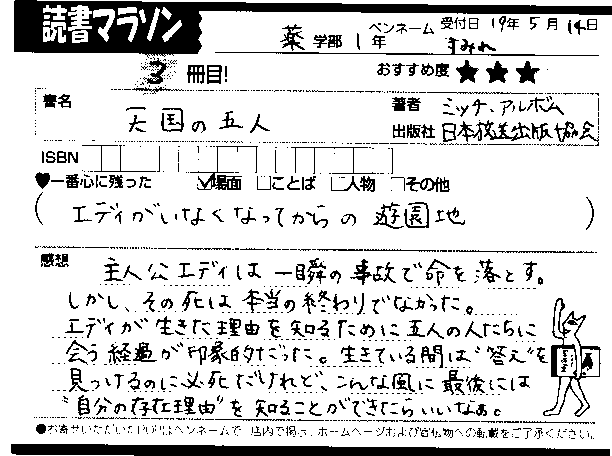 読書マラソン
ペンネーム 受付日 19年 5月 14日
薬 学部 1年 すみれ
3 冊目! おすすめ度 ★★★
書名 天国の五人
著者 ミッチ・アルボム
出版社 日本放送出版協会
ISBN
♥一番心に残った ☑場面 □ことば □人物 □その他
(エディがいなくなってからの遊園地)
感想 主人公エディは一瞬の事故で命を落とす。
しかし、その死は本当の終わりでなかった。
エディが生きた理由を知るために五人の人たちに
会う経過が印象的だった。生きている間は"答え"を
見つけるのに必死だけれど、こんな風に最後には
"自分の存在理由"を知ることができたらいいなぁ。
●お寄せいただいたPOPはペンネームで、店内で掲示、ホームページおよび各種への転載をご了承ください。